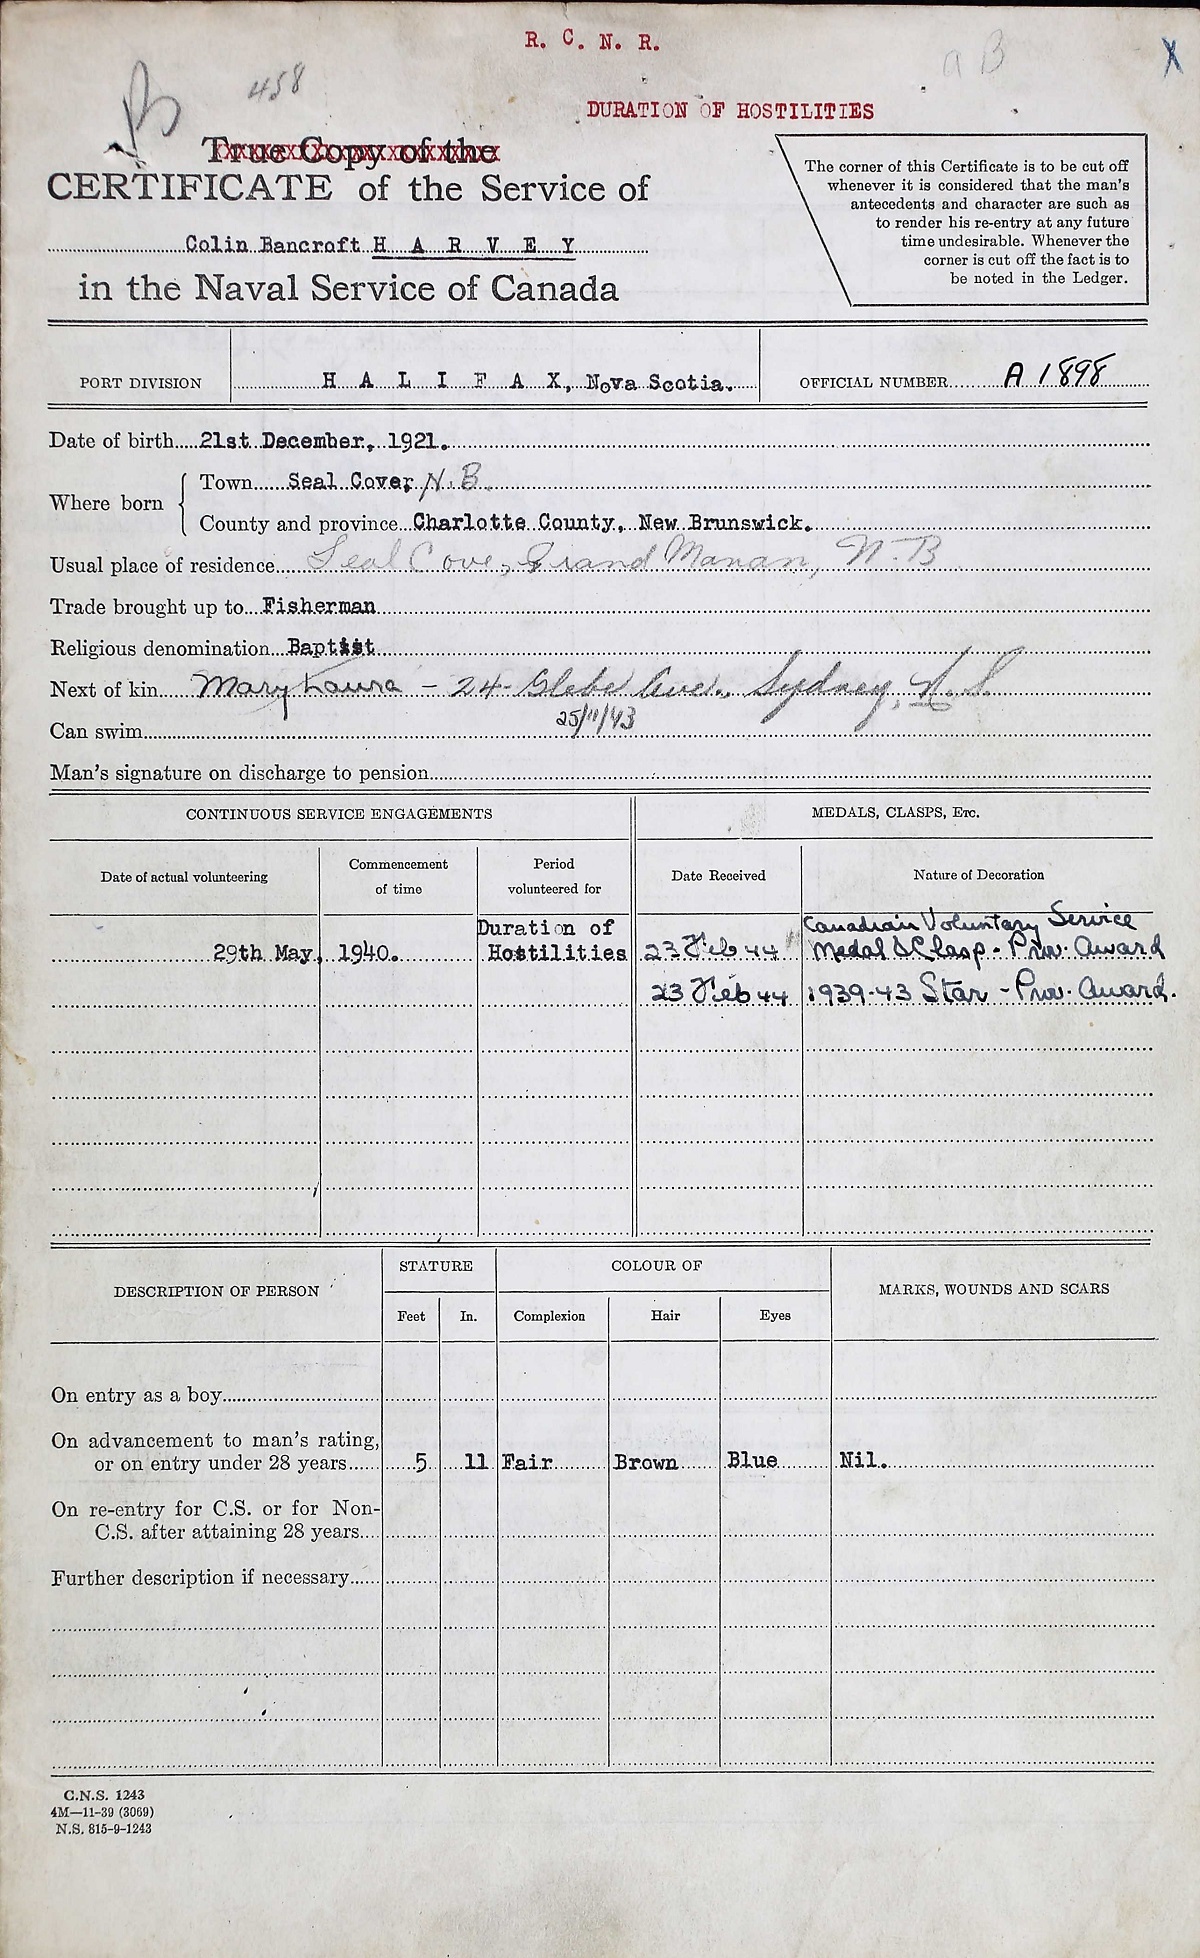 R. C. N. R.
458
a B
X
DURATION OF HOSTILITIES
True Copy of the
CERTIFICATE of the Service of
Colin Bancroft H A R V E Y
in the Naval Service of Canada
The corner of this Certificate is to be cut off
whenever it is considered that the man's
antecedents and character are such as
to render his re-entry at any future
time undesirable. Whenever the
corner is cut off the fact is to
be noted in the Ledger.
PORT DIVISION H A L I F A X, Nova Scotia. OFFICIAL NUMBER A 1898
Date of birth 21st December, 1921.
Where born
Town Seal Cove, N.B.
County and province Charlotte County, New Brunswick.
Usual place of residence Seal Cove, Grand Manan, N.B
Trade brought up to Fisherman
Religious denomination Baptist
Next of kin Mary Laura - 24 Glebe Ave., Sydney, N.S.
25/11/43
Can swim
Man's signature on discharge to pension
CONTINUOUS SERVICE ENGAGEMENTS MEDALS, CLASPS, Etc.
Date of actual volunteering Commencement of time Period volunteered for Date Received Nature of Decoration
29th May, 1940. Duration of Hostilities 23 Feb 44 Canadian Voluntary Service Medal & Clasp - Prov. Award
23 Feb 44 1939-43 Star - Prov. Award.
DESCRIPTION OF PERSON STATURE COLOUR OF MARKS, WOUNDS AND SCARS
Feet In. Complexion Hair Eyes
On entry as a boy
On advancement to man's rating,
or on entry under 28 years 5 11 Fair Brown Blue Nil.
On re-entry for C.S. or for Non-
C.S. after attaining 28 years
Further description if necessary
C.N.S. 1243
4M—11-39 (3069)
N.S. 815-9-1243